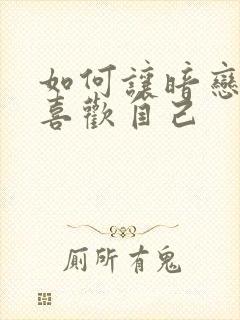 如何讓暗戀
喜歡自己
厠所有鬼